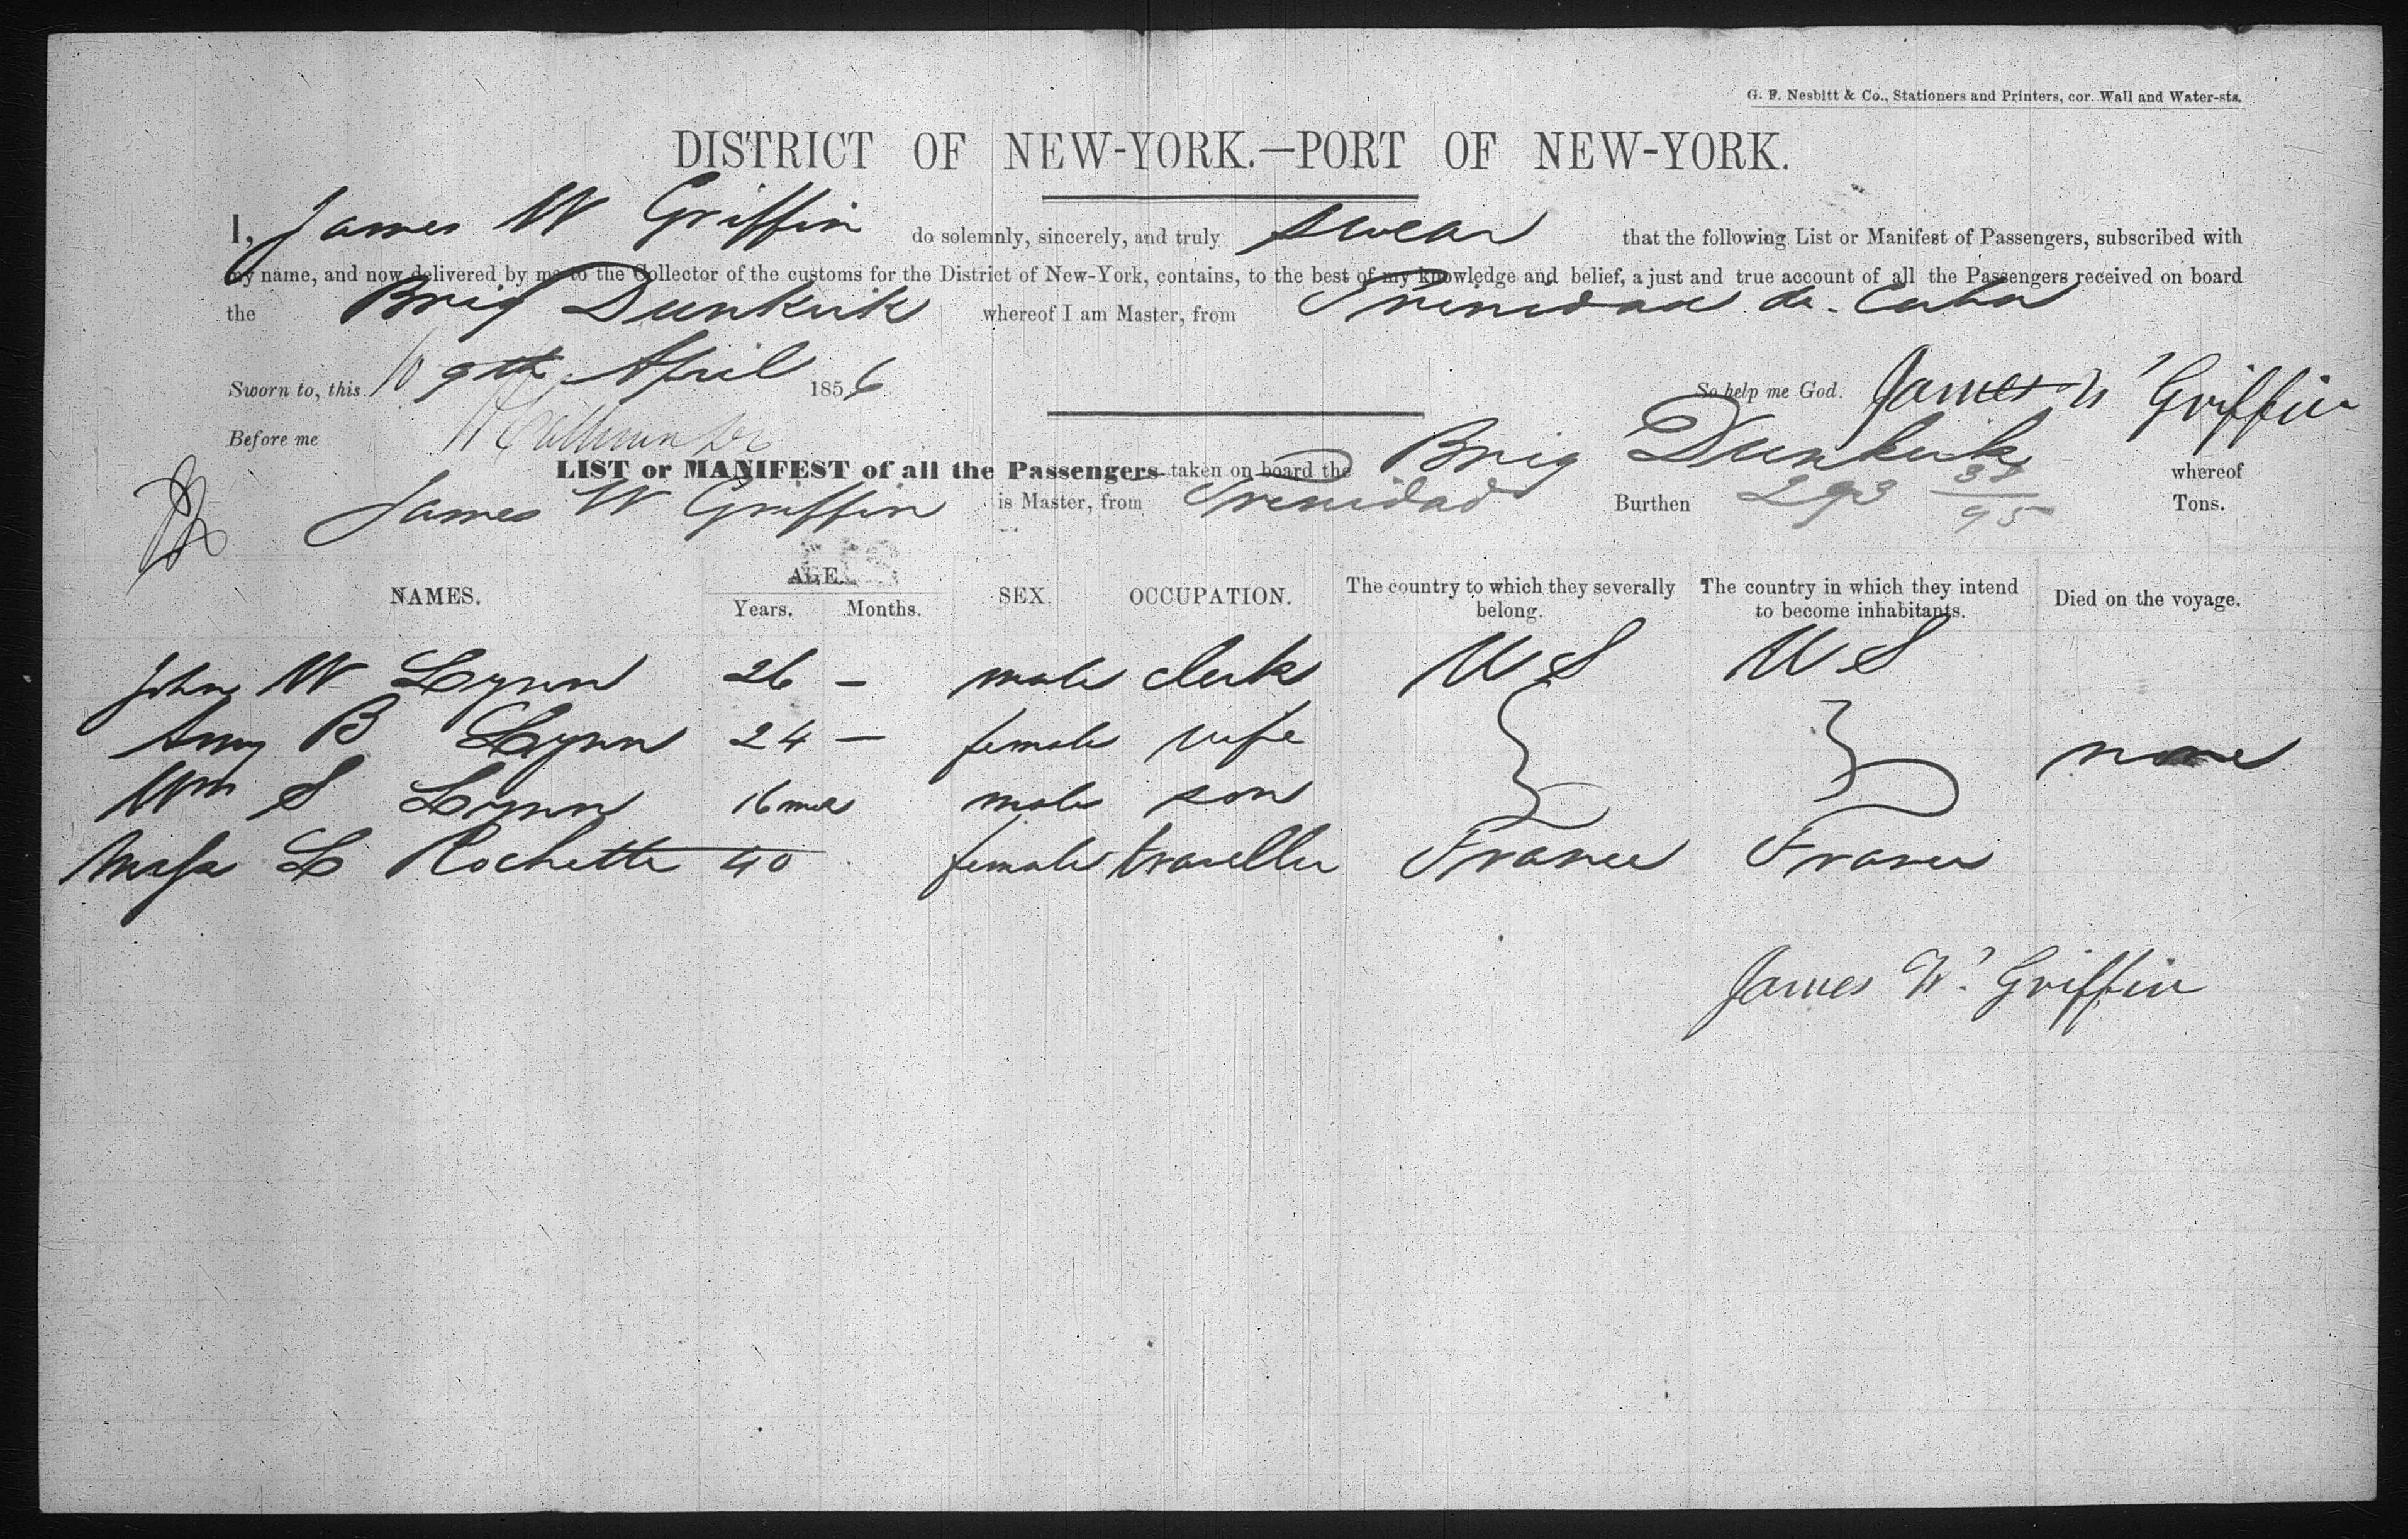 G. F. Nesbitt & Co., Stationers and Printers, cor. Wall and Water-sts.
DISTRICT OF NEW-YORK.—PORT OF NEW-YORK.
I, James W Griffin do solemnly, sincerely, and truly swear that the following List or Manifest of Passengers, subscribed with
my name, and now delivered by me to the Collector of the customs for the District of New-York, contains, to the best of my knowledge and belief, a just and true account of all the Passengers received on board
the Brig Dunkirk whereof I am Master, from Trinidad de Cuba
Sworn to, this 10 9th April 1856 So help me God. James W Griffin
Before me
LIST or MANIFEST of all the Passengers taken on board the Brig Dunkirk whereof
James W Griffin is Master, from Trinidad Burthen 293 /95 Tons.
NAMES. AGE. Years. Months. SEX. OCCUPATION. The country to which they severally belong. The country in which they intend to become inhabitants. Died on the voyage.
John W Lynn 26 – male clerk U S U S
Amy B Lynn 24 – female wife none
Wm S Lynn 16 mos male son
L Rochette 40 female traveller France France
James W. Griffin